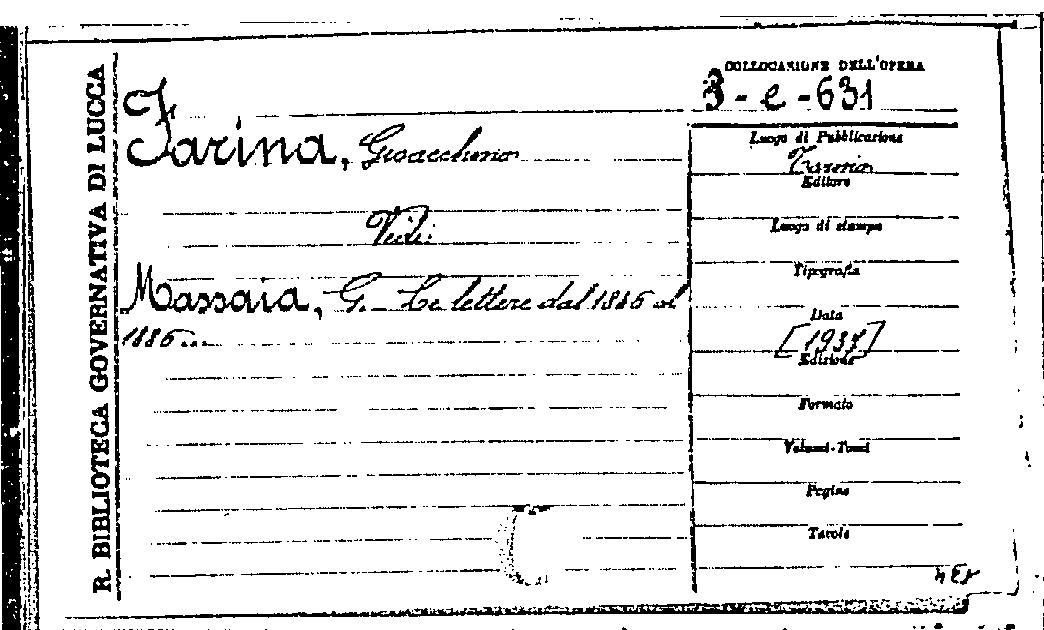 R. BIBLIOTECA GOVERNATIVA DI LUCCA
COLLOCAZIONE DELL'OPERA
3-e-631
Farina, Gioacchino
Vedi:
Massaia, G. Le lettere dal 1846 al
1886...
Luogo di Pubblicazione
Torino
Editore
Luogo di stampa
Tipografia
Data
[1937]
Edizione
Formato
Volumi-Tomi
Pagine
Tavole